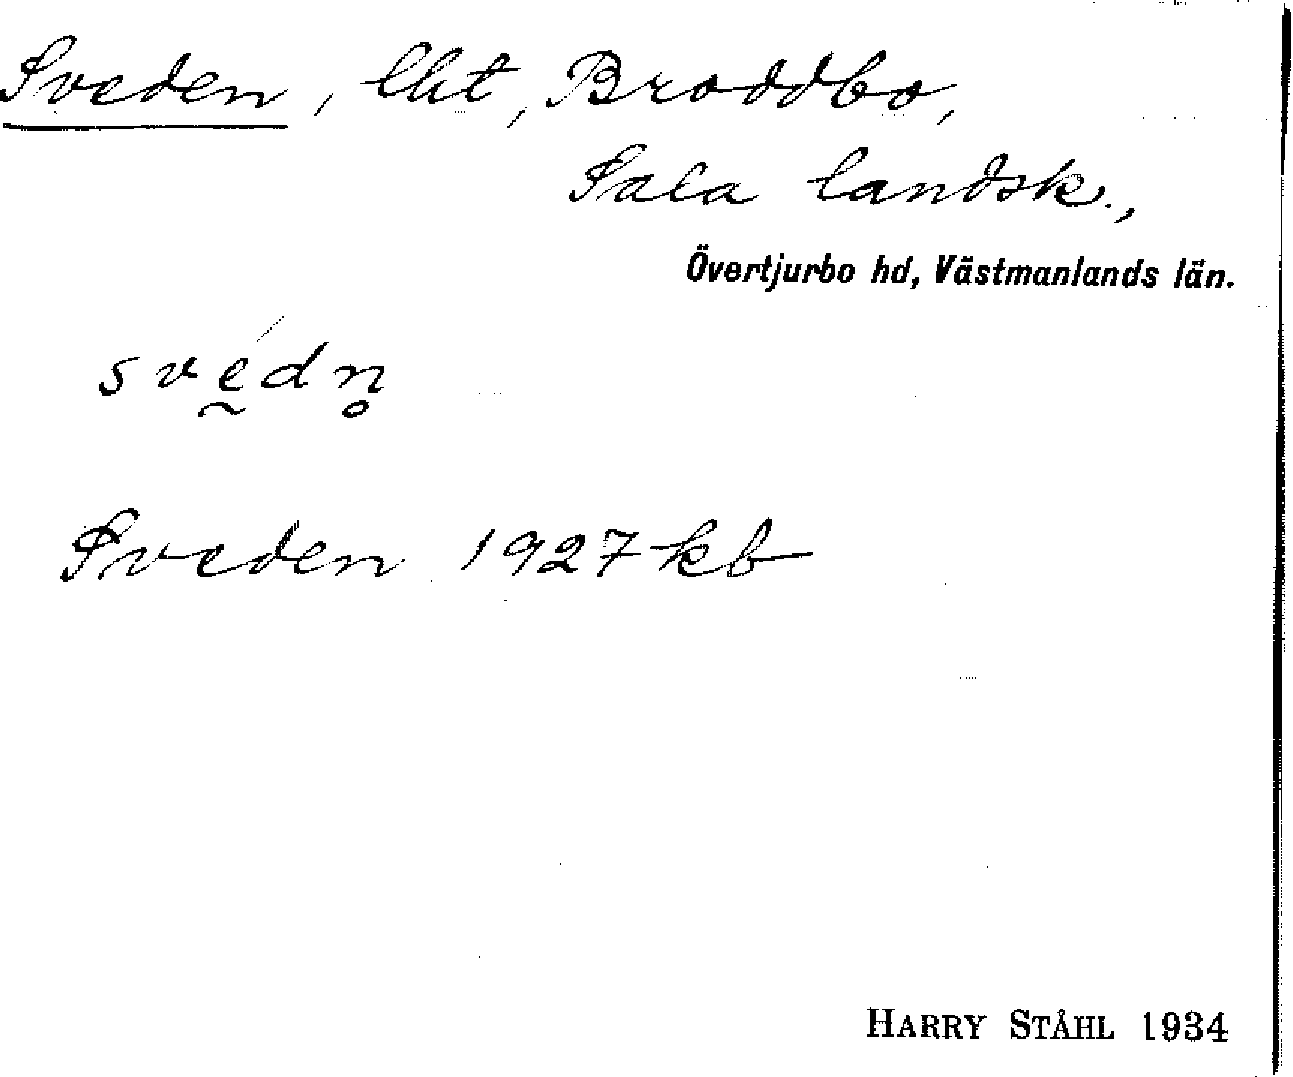 Sveden, lht, Broddbo,
Sala landsk.,
Övertjurbo hd, Västmanlands län.
svḛ́dn̥
Sveden 1927 kb
HARRY STÅHL 1934